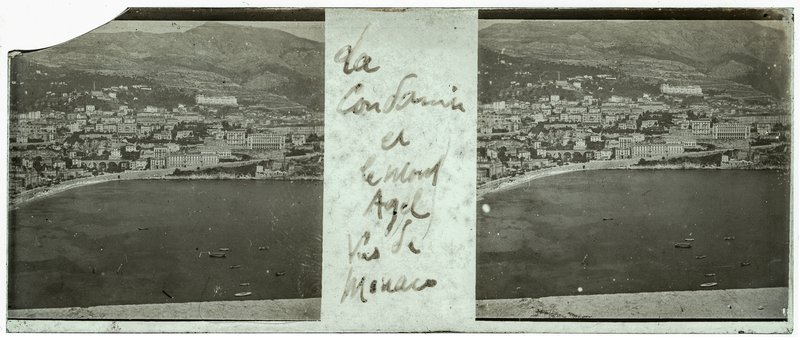 La
Condamine
et
le mont
Agel
Vus de
Monaco